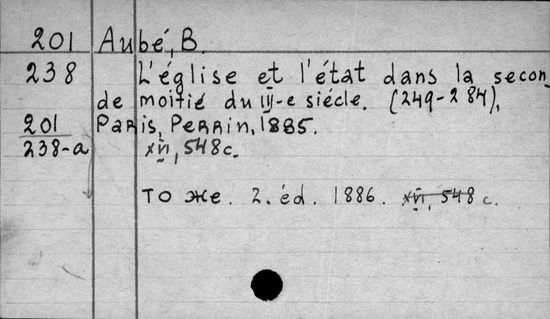 201 Aubé, B.
238 L'église et l'état dans la secon-
de moitié du III-e siécle. (249-284),
201 Paris, Perrin, 1885.
238-a XVI, 548 c.
То же. 2. éd. 1886. XVI, 548 c.